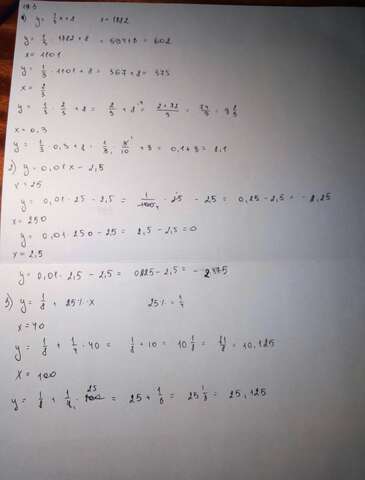 y = 1/3 x + 8    x = 1782
y = 1/3 · 1782 + 8 = 594 + 8 = 602
x = 1101
y = 1/3 · 1101 + 8 = 367 + 8 = 375
x = 2/3
y = 1/3 · 2/3 + 8 = 2/9 + 8 = 2 + 72/9 = 74/9 =
x = 0,3
y = 1/3 · 0,3 + 8 = 1/3 · 3/10 + 8 = 0,1 + 8 = 8,1
2) y = 0,01x - 2,5
x = 25
y = 0,01 · 25 - 2,5 = 1/100 · 25 - 25 = 0,25 - 2,5 = - 2,25
x = 250
y = 0,01 · 250 - 2,5 = 2,5 - 2,5 = 0
x = 2,5
y = 0,01 · 2,5 - 2,5 = 0,025 - 2,5 = -
3) y = 1/8 + 25% · x    25% = 1/4
x = 40
y = 1/8 + 1/4 · 40 = 1/8 + 10 = 10 1/8 = 10,125
x = 100
y = 1/8 + 1/4 · 100 = 25 + 1/8 = 25 1/8 = 25,125